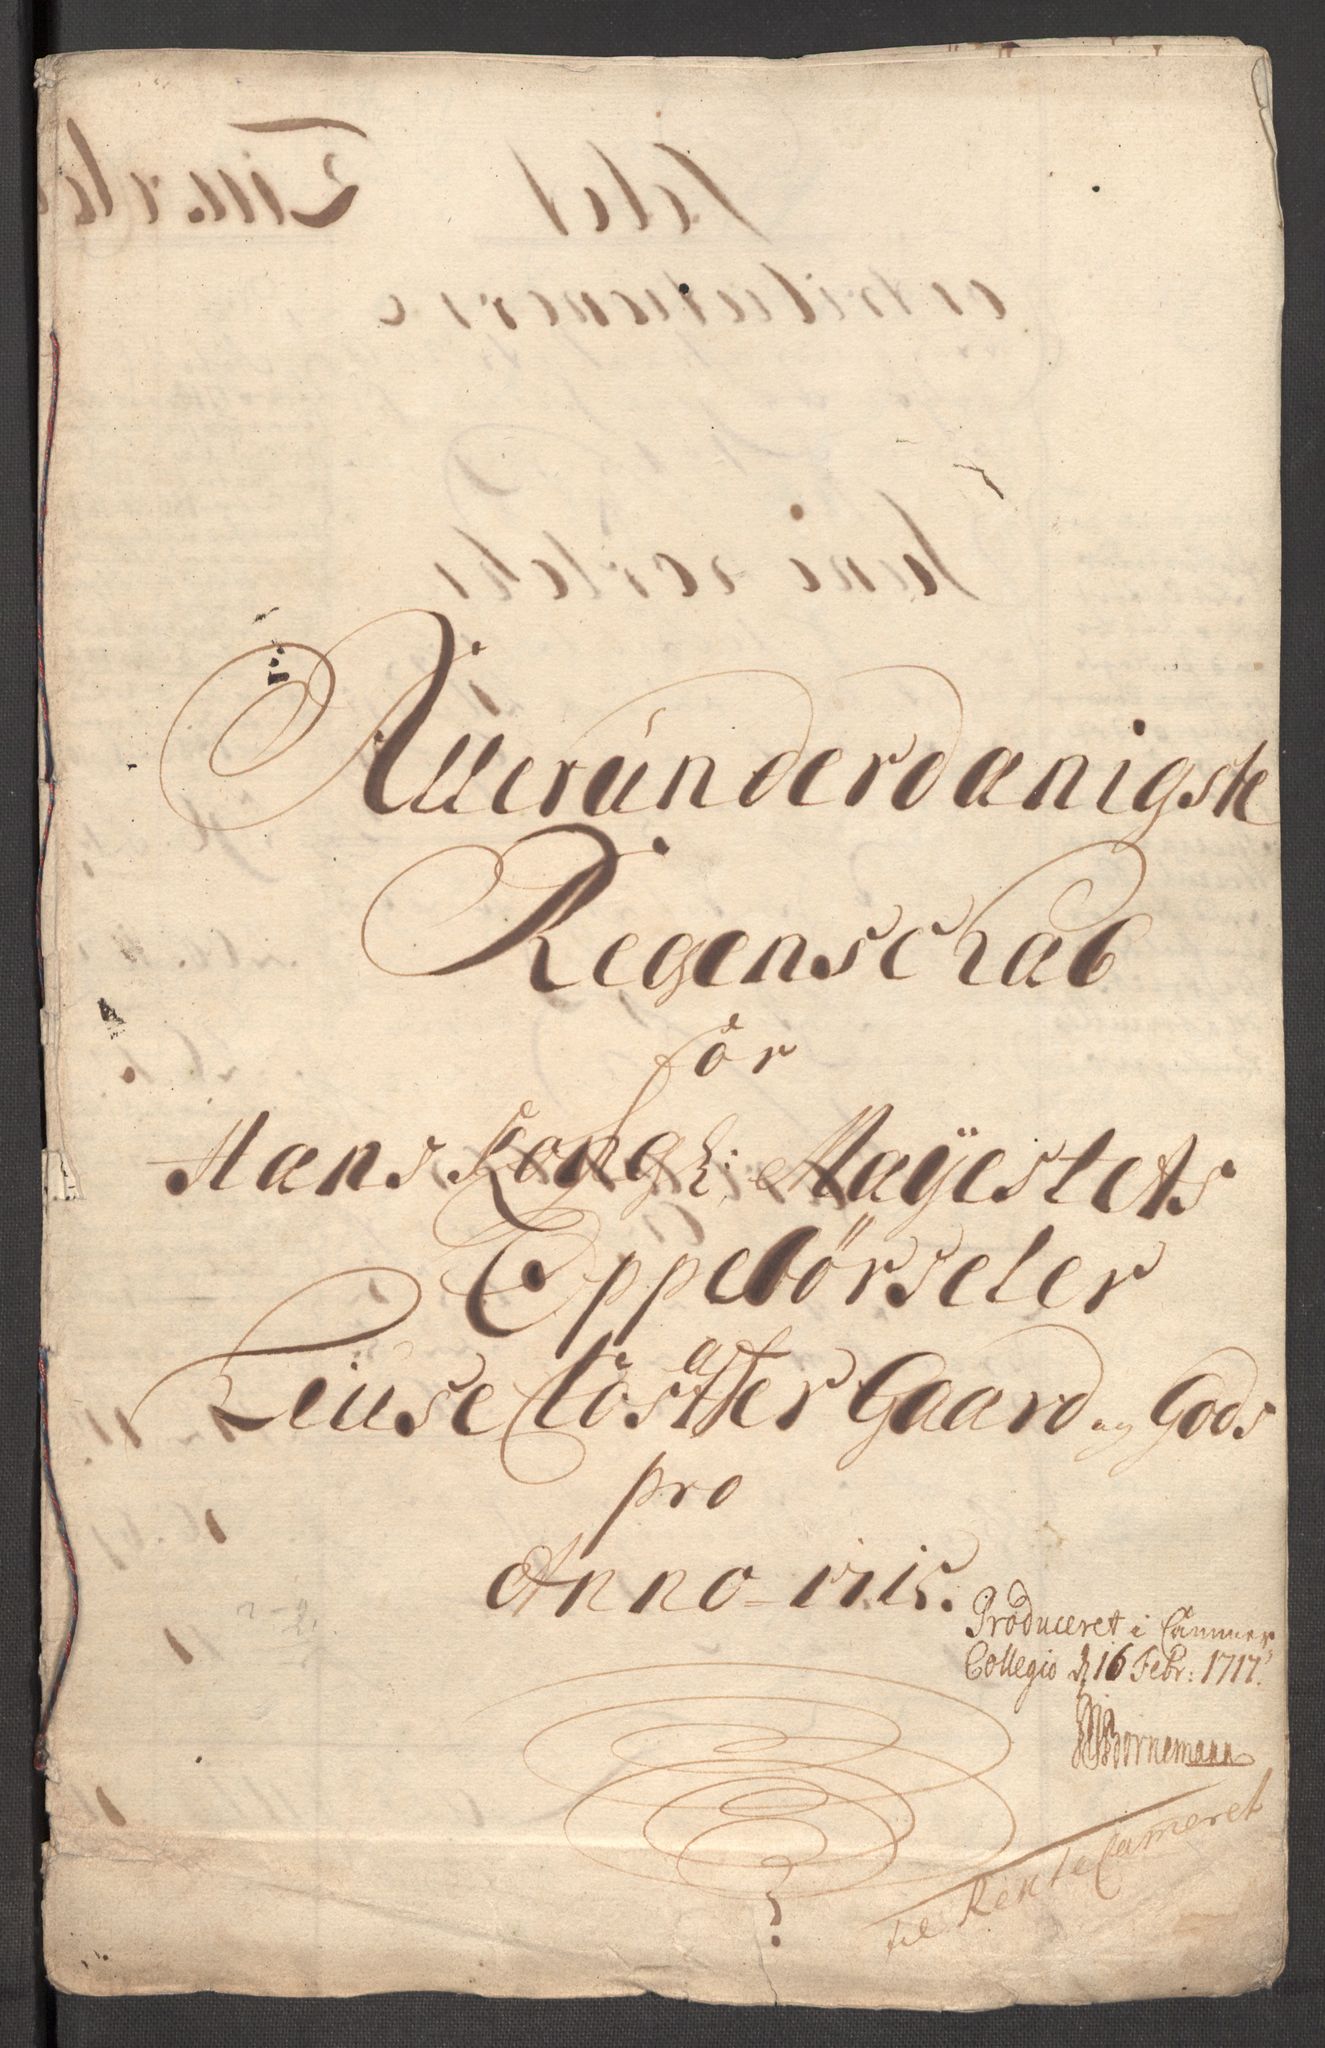 Allerúnderdanigste
Regenschab
for
Hans Kongl: Mayestets
Oppebörseler
Liuse Closter Gaard og Gods
pro
Anno 1715.
Produceret i Cammer
Collegio d 16 Febr: 1717.
Bornemann
til RenteCameret